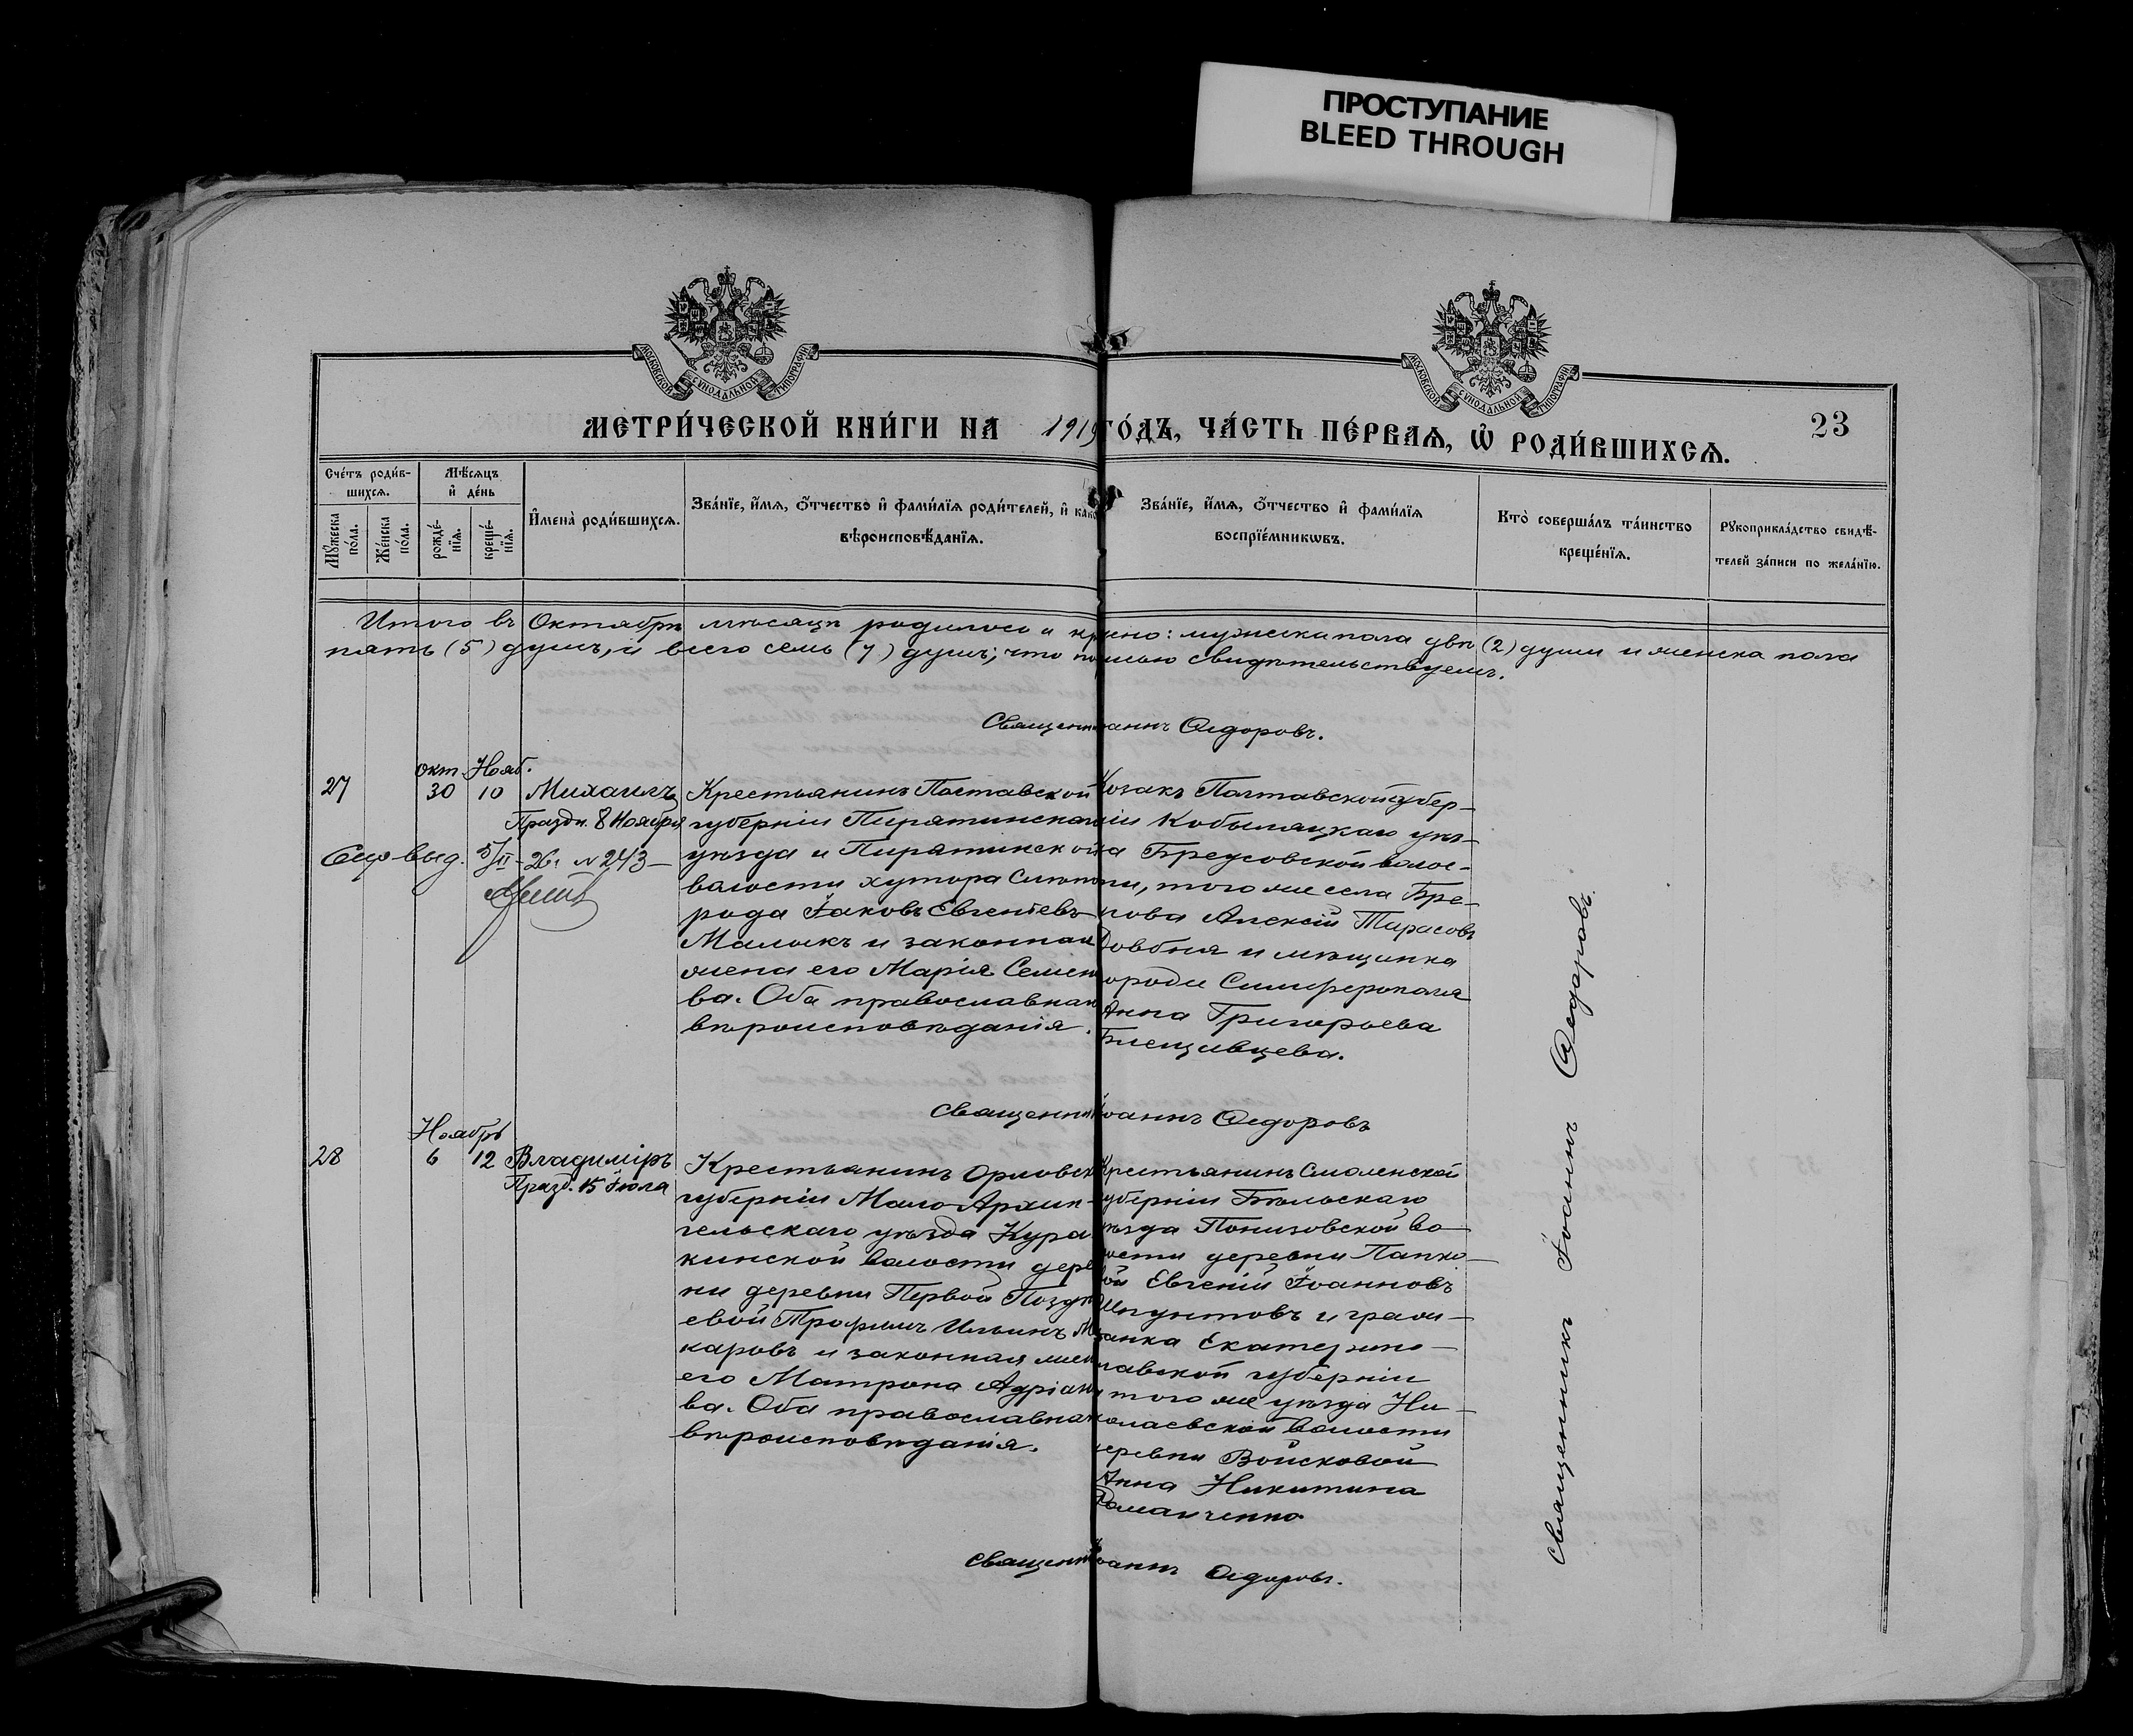 ПРОСТУПАНИЕ
BLEED THROUGH
МОСКОВСКОЙ СУНОДАЛЬНОЙ ТИПОГРАФІИ
МОСКОВСКОЙ СУНОДАЛЬНОЙ ТИПОГРАФІИ
МЕТРИ́ЧЕСКОЙ КНИ́ГИ НА 1919 ГО́ДЪ, ЧА́СТЬ ПЕ́РВАѦ, Ѿ РОДИ́ВШИХСѦ.
23
Сче́тъ роди́в-
шихсѧ.
Мѣ́сѧцъ
и҆ де́нь
Мꙋ́жеска по́ла.
Же́нска по́ла.
рожде́-
нїѧ.
креще́-
нїѧ.
И҆мена̀ роди́вшихсѧ.
Зва́нїе, и҆́мѧ, ѻ҆́тчество и҆ фами́лїѧ роди́телей, и҆ како
вѣроисповѣ́данїѧ.
Зва́нїе, и҆́мѧ, ѻ҆́тчество и҆ фами́лїѧ
воспрїе́мникѡвъ.
Кто̀ соверша́лъ та́инство
креще́нїѧ.
Рꙋкоприкла́дство свидѣ́-
телей за́писи по жела́нїю.
Итого въ Октябрѣ мѣсяцѣ родилось и крено: мужска пола двѣ (2) души и женска пола
пять (5) душъ, и всего семь (7) душъ; что подписью свидѣтельствуемъ.
Священни Іоаннъ Ѳедоровъ.
27
окт. 30
Нояб. 10
Михаилъ
Праздн. 8 Ноября
выд. 5/II - 26 г. № 243
Крестьянинъ Полтавской
губерніи Пирятинскаго
уѣзда и Пирятинской
волости хутора Слѣпо
рода Іаковъ Евгеніевъ
Малыкъ и законная
жена его Марія Семено
ва. Оба православнаго
вѣроисповѣданія.
Козакъ Полтавской губер-
ніи Кобыляцкаго уѣз-
да Бреусовской волос-
ти, того же села Бре-
усова Алексій Тарасовъ
Довбня и мѣщанка
города Симферополя
Анна Григорьева
Блещавцева.
Священни Іоаннъ Ѳедоровъ
28
Ноябрь
6
12
Владиміръ
Празд. 15 Іюля
Крестьянинъ Орловск
губерніи Мало Архан-
гельскаго уѣзда Кура
кинской волости дерев
ни деревни Первой Поздѣ
евой Трофимъ Ильинъ Ма
каровъ и законная жена
его Матрона Адріано
ва. Оба православнаго
вѣроисповѣданія.
Крестьянинъ Смоленской
губерніи Бѣльскаго
уѣзда Понизовской во-
лости деревни Папко-
вой Евгеній Іоанновъ
Шпунтовъ и граж-
данка Екатерино-
славской губерніи
того же уѣзда Ни-
колаевской волости
деревни Войсковой
Анна Никитина
Романченко.
Священн Іоаннъ Ѳедоровъ.
Священникъ Іоаннъ Ѳедоровъ.